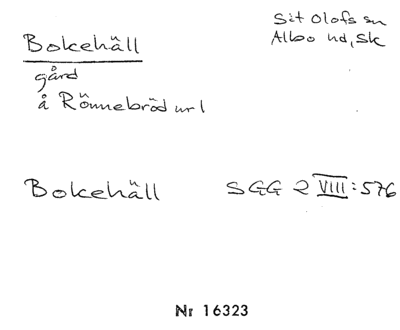 Bokehäll
S:t Olofs sn
Albo hd, Sk
gård
å Rönnebröd nr 1
Bokehäll SGG 2 VIII:576
Nr 16323